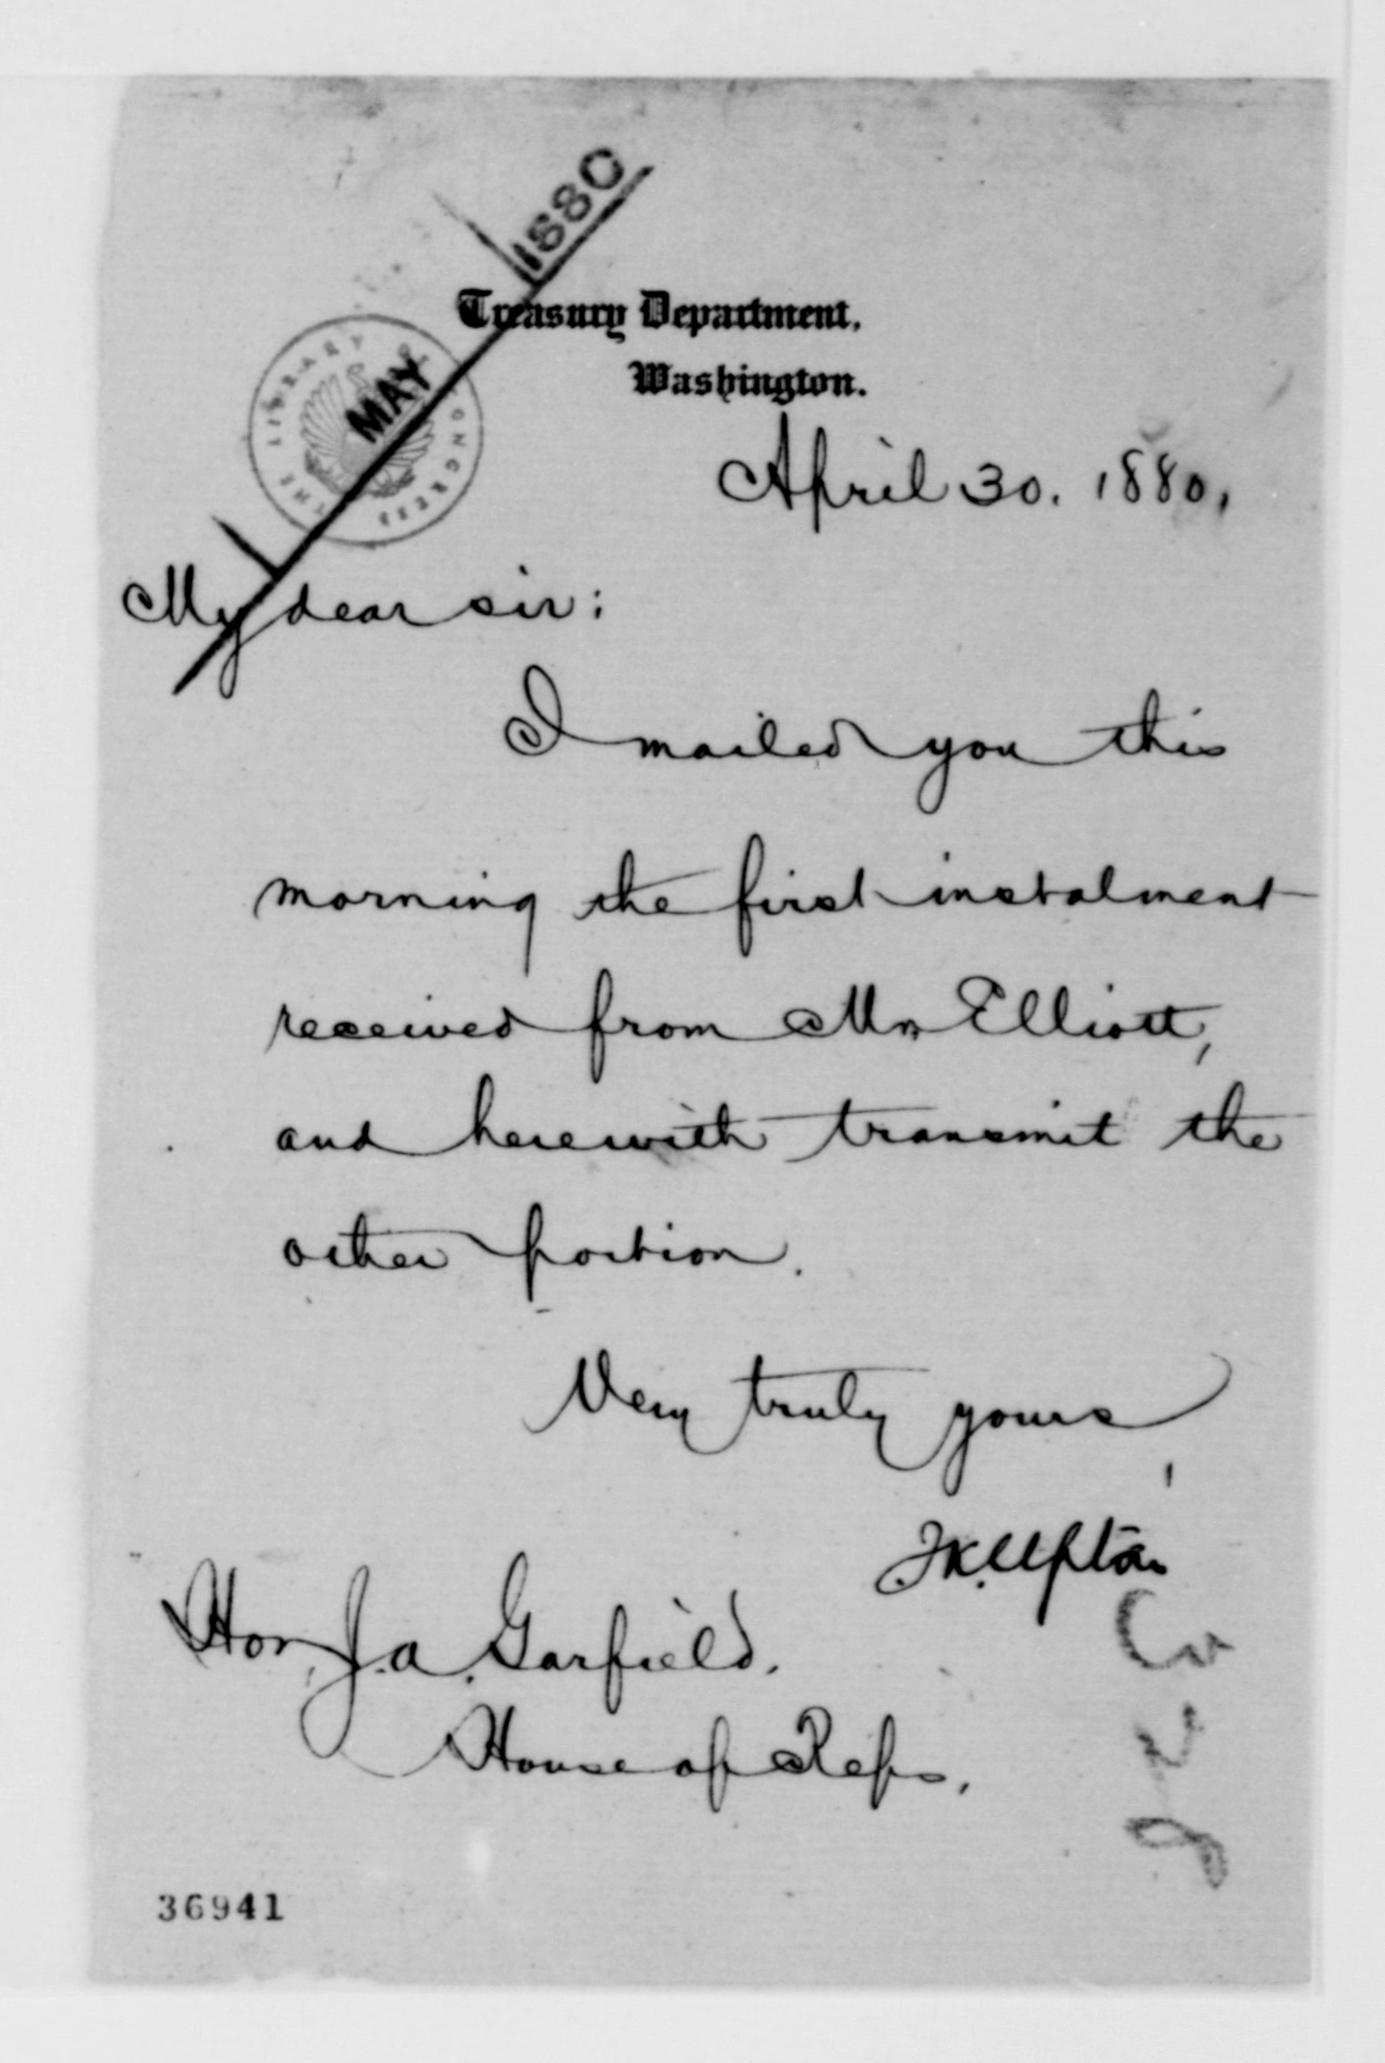 1880
Treasury Department,
Washington.
THE LIBRARY OF CONGRESS
MAY
April 30. 1880,
My dear sir:
I mailed you this
morning the first instalment
received from Mr Elliott,
and herewith transmit the
other portion.
Very truly yours,
J.K. Upton
Hon. J. A. Garfield.
House of Reps.
36941